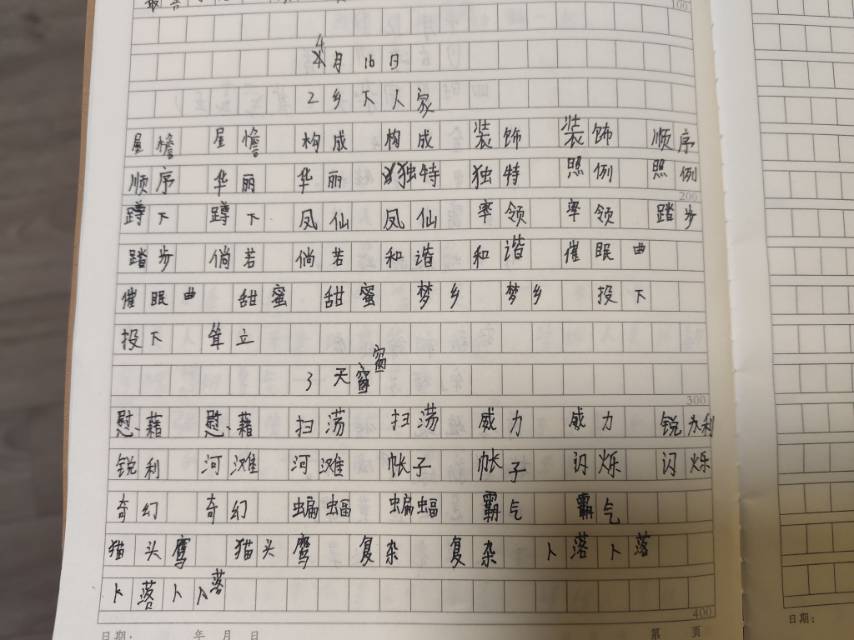 100
4月16日
2乡下人家
屋檐 屋檐 构成 构成 装饰 装饰 顺序
顺序 华丽 华丽 独特 独特 照例 照例
200
蹲下 蹲下 凤仙 凤仙 率领 率领 踏步
踏步 倘若 倘若 和谐 和谐 催眠曲
催眠曲 甜蜜 甜蜜 梦乡 梦乡 投下
投下 耸立
3天窗
300
慰藉 慰藉 扫荡 扫荡 威力 威力 锐利
锐利 河滩 河滩 帐子 帐子 闪烁 闪烁
奇幻 奇幻 蝙蝠 蝙蝠 霸气 霸气
猫头鹰 猫头鹰 复杂 复杂 卜落卜落
卜落卜落
400
日期： 年 月 日 第 页
日期：